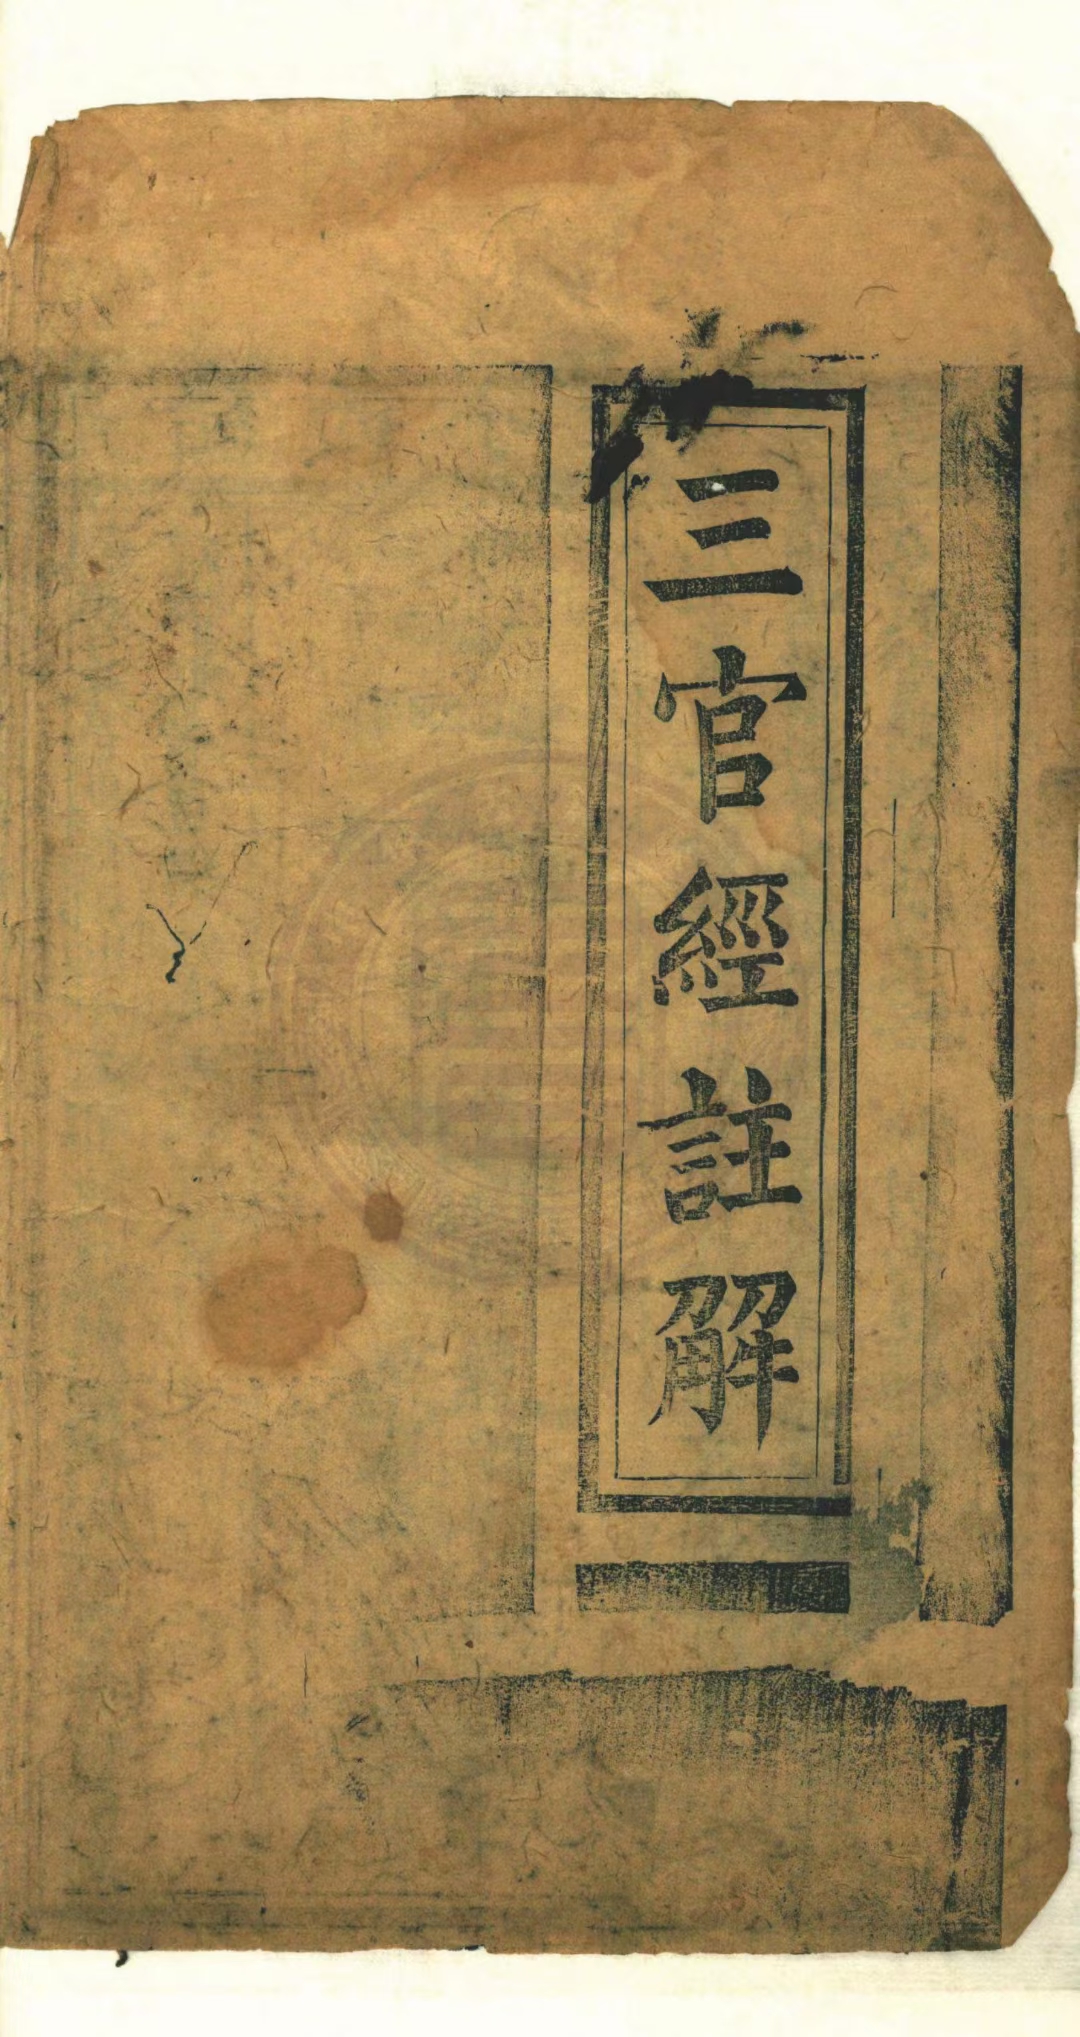 三官經註解